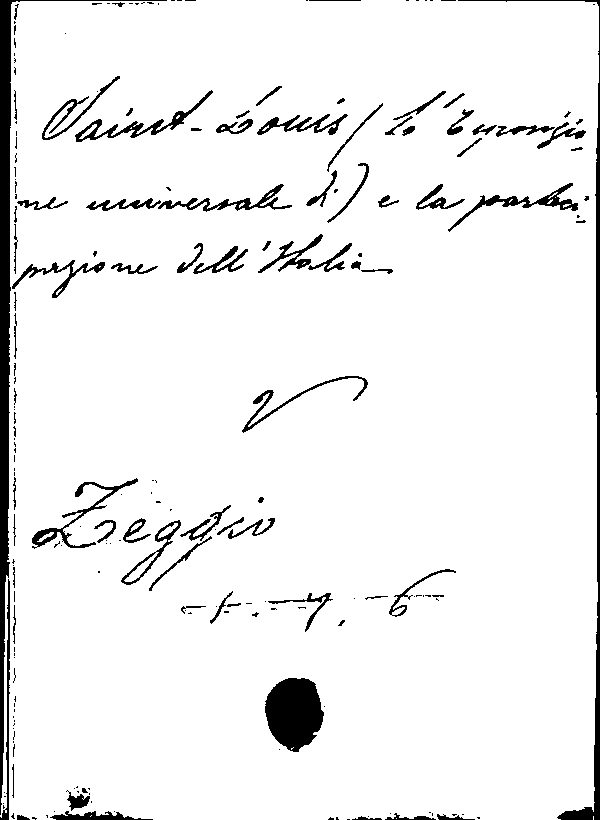 Saint-Louis (L'Esposizio-
ne universale di) e la parteci-
pazione dell'Italia
V
Zeggio
1. 7. 6